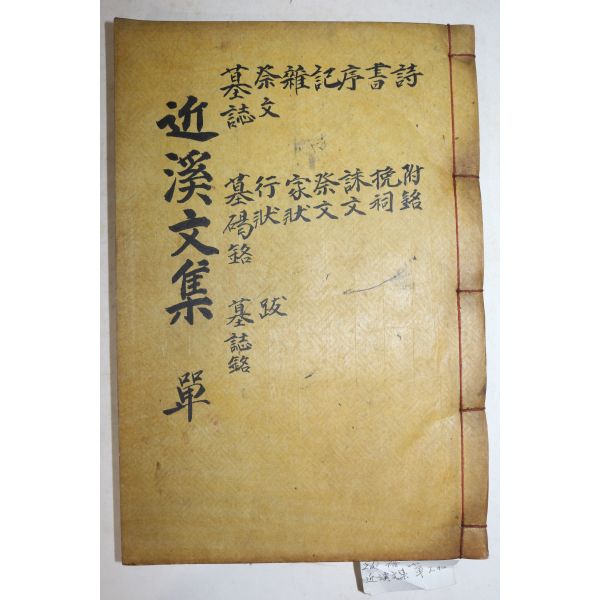 詩
書
序
記
雜
祭文
墓誌
附錄
挽祠
誄文
祭文
家狀
行狀
墓碣銘
跋
墓誌銘
近溪文集 單
近溪文集 單